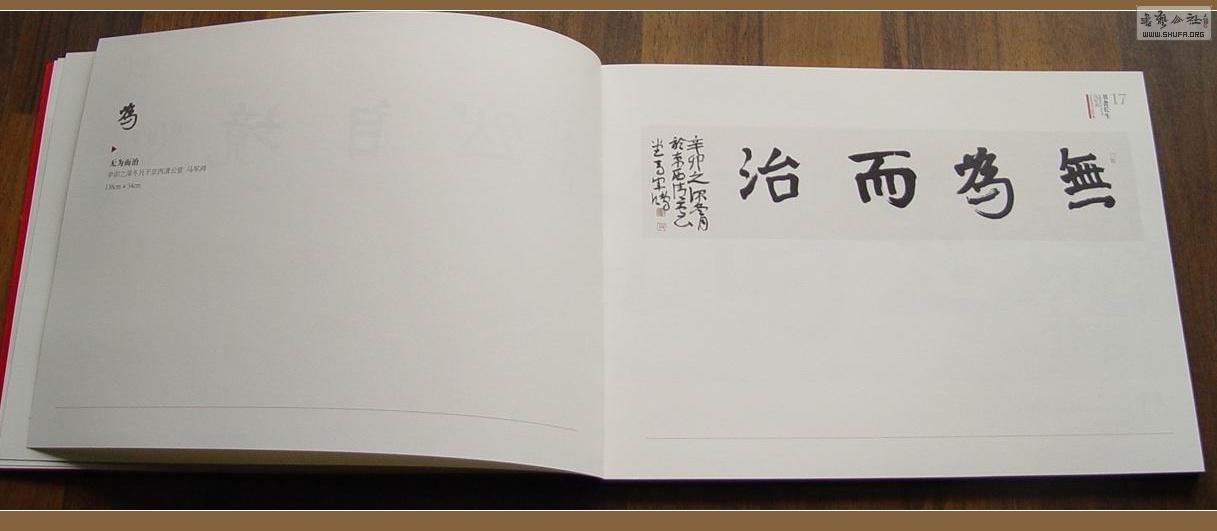 为
无为而治
辛卯之深冬月于京西清公堂 马军鸿
138cm × 34cm
17
無為而治
辛卯之深冬月
於京西清公
堂馬軍鴻
WWW.SHUFA.ORG